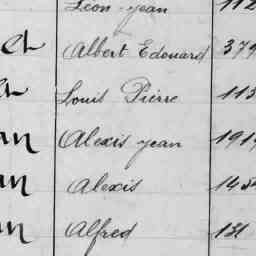 Léon-jean 112
et Albert Edouard 379
et Louis Pierre 113
an Alexis jean 191
an Alexis 145
an Alfred 131